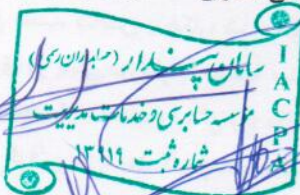 رایان پندار (حسابداران رسمی)
موسسه حسابرسی و خدمات مدیریت
شماره ثبت ۱۳۹۱۹
IACPA